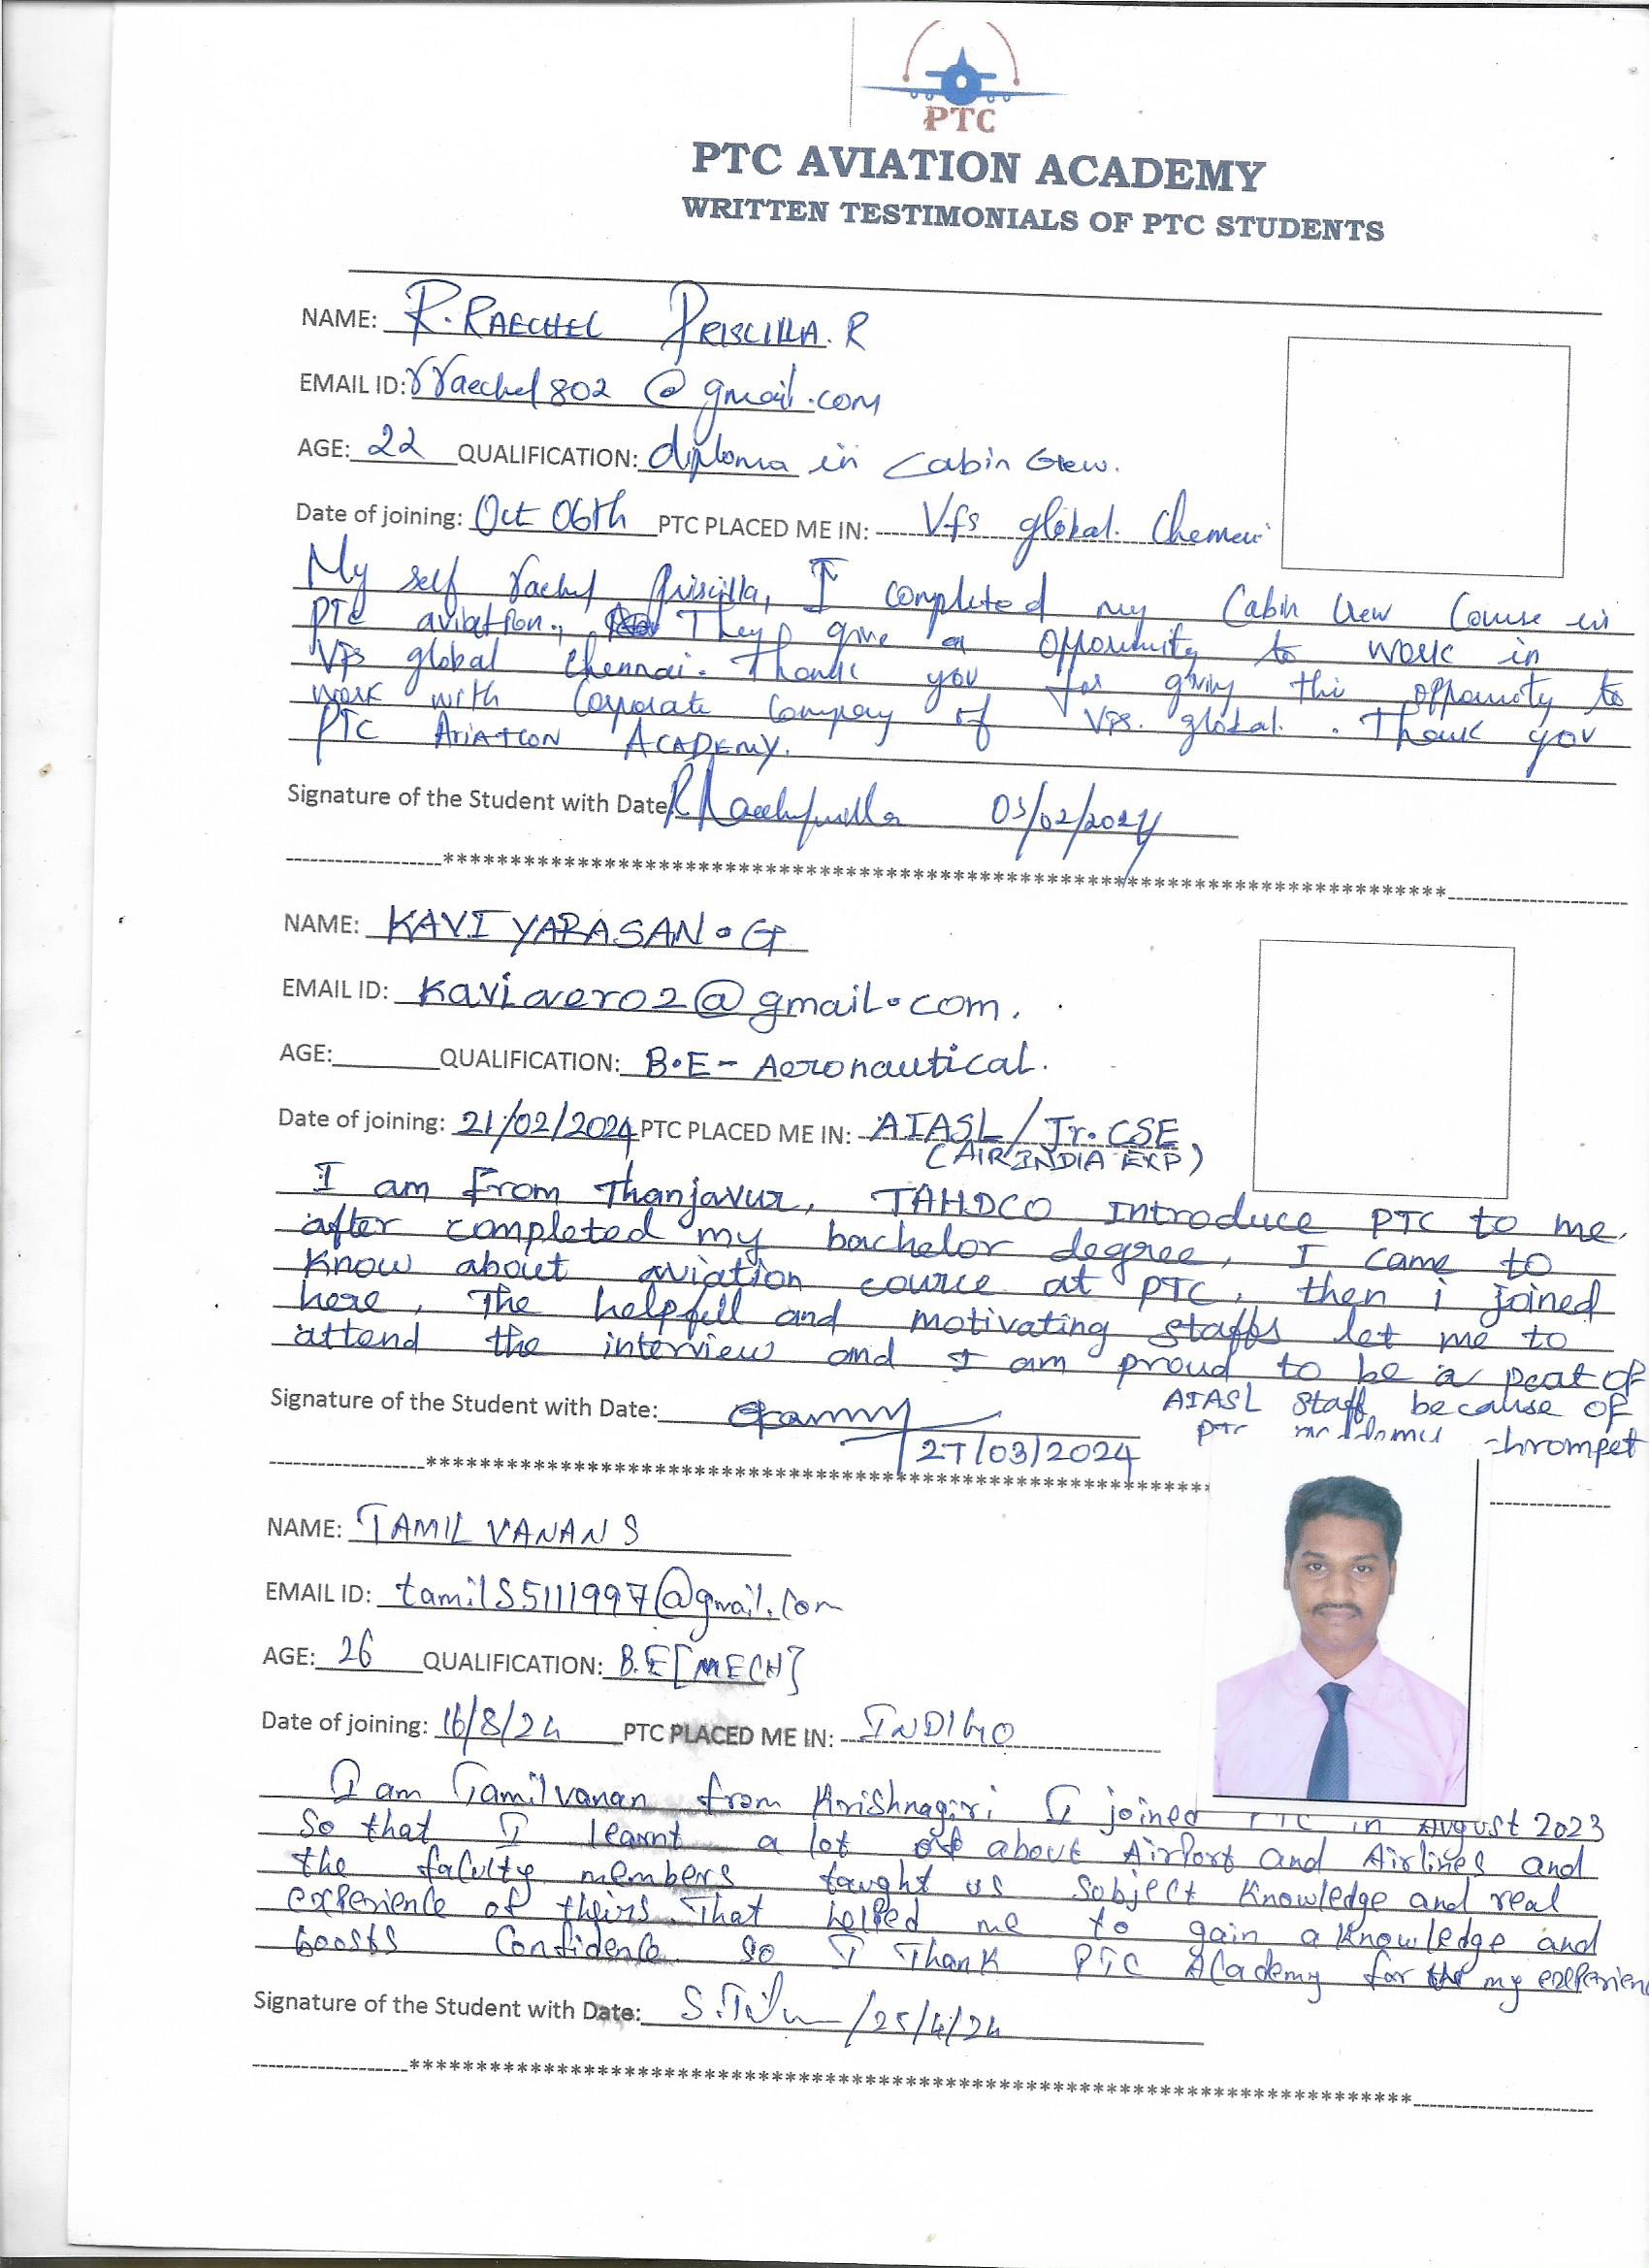 PTC
PTC AVIATION ACADEMY
WRITTEN TESTIMONIALS OF PTC STUDENTS
NAME: R. RAECHEL PRISCILLA. R
EMAIL ID: rraechel802@gmail.com
AGE: 22 QUALIFICATION: diploma in Cabin Crew.
Date of joining: Oct 06th PTC PLACED ME IN: Vfs global. Chennai
My self rachel Priscilla, I completed my Cabin Crew Course in
PTC aviation., They give a opportunity to work in
Vfs global Chennai. Thank you for giving this oppounity to
work with Corporate Company of Vfs. global. Thank you
PTC AVIATION ACADEMY.
Signature of the Student with Date 03/02/2024
******************************************************************************
NAME: KAVIYARASAN. G
EMAIL ID: kaviaero2@gmail.com.
AGE: QUALIFICATION: B.E - Aeronautical.
Date of joining: 21/02/2024 PTC PLACED ME IN: AIASL / Jr. CSE
(AIR INDIA EXP)
I am from Thanjavur, TAHDCO Introduce PTC to me.
after completed my bachelor degree, I came to
Know about aviation course at PTC. then i joined
here, The helpfull and motivating staffs let me to
attend the interview and I am proud to be a peat of
AIASL Staff because of
PTC chrompet
Signature of the Student with Date: 27/03/2024
******************************************************************************
NAME: TAMIL VANAN S
EMAIL ID: tamilS5111997@gmail.com
AGE: 26 QUALIFICATION: B.E [MECH]
Date of joining: 16/8/24 PTC PLACED ME IN: INDIGO
I am Tamilvanan from Krishnagiri I joined PTC in August 2023
So that I learnt a lot about Airport and Airlines and
the faculty members taught us Subject Knowledge and real
experience of theirs. That helped me to gain a Knowledge and
boosts Confidence. So I Thank PTC Academy for my experien
Signature of the Student with Date: /25/4/24
******************************************************************************